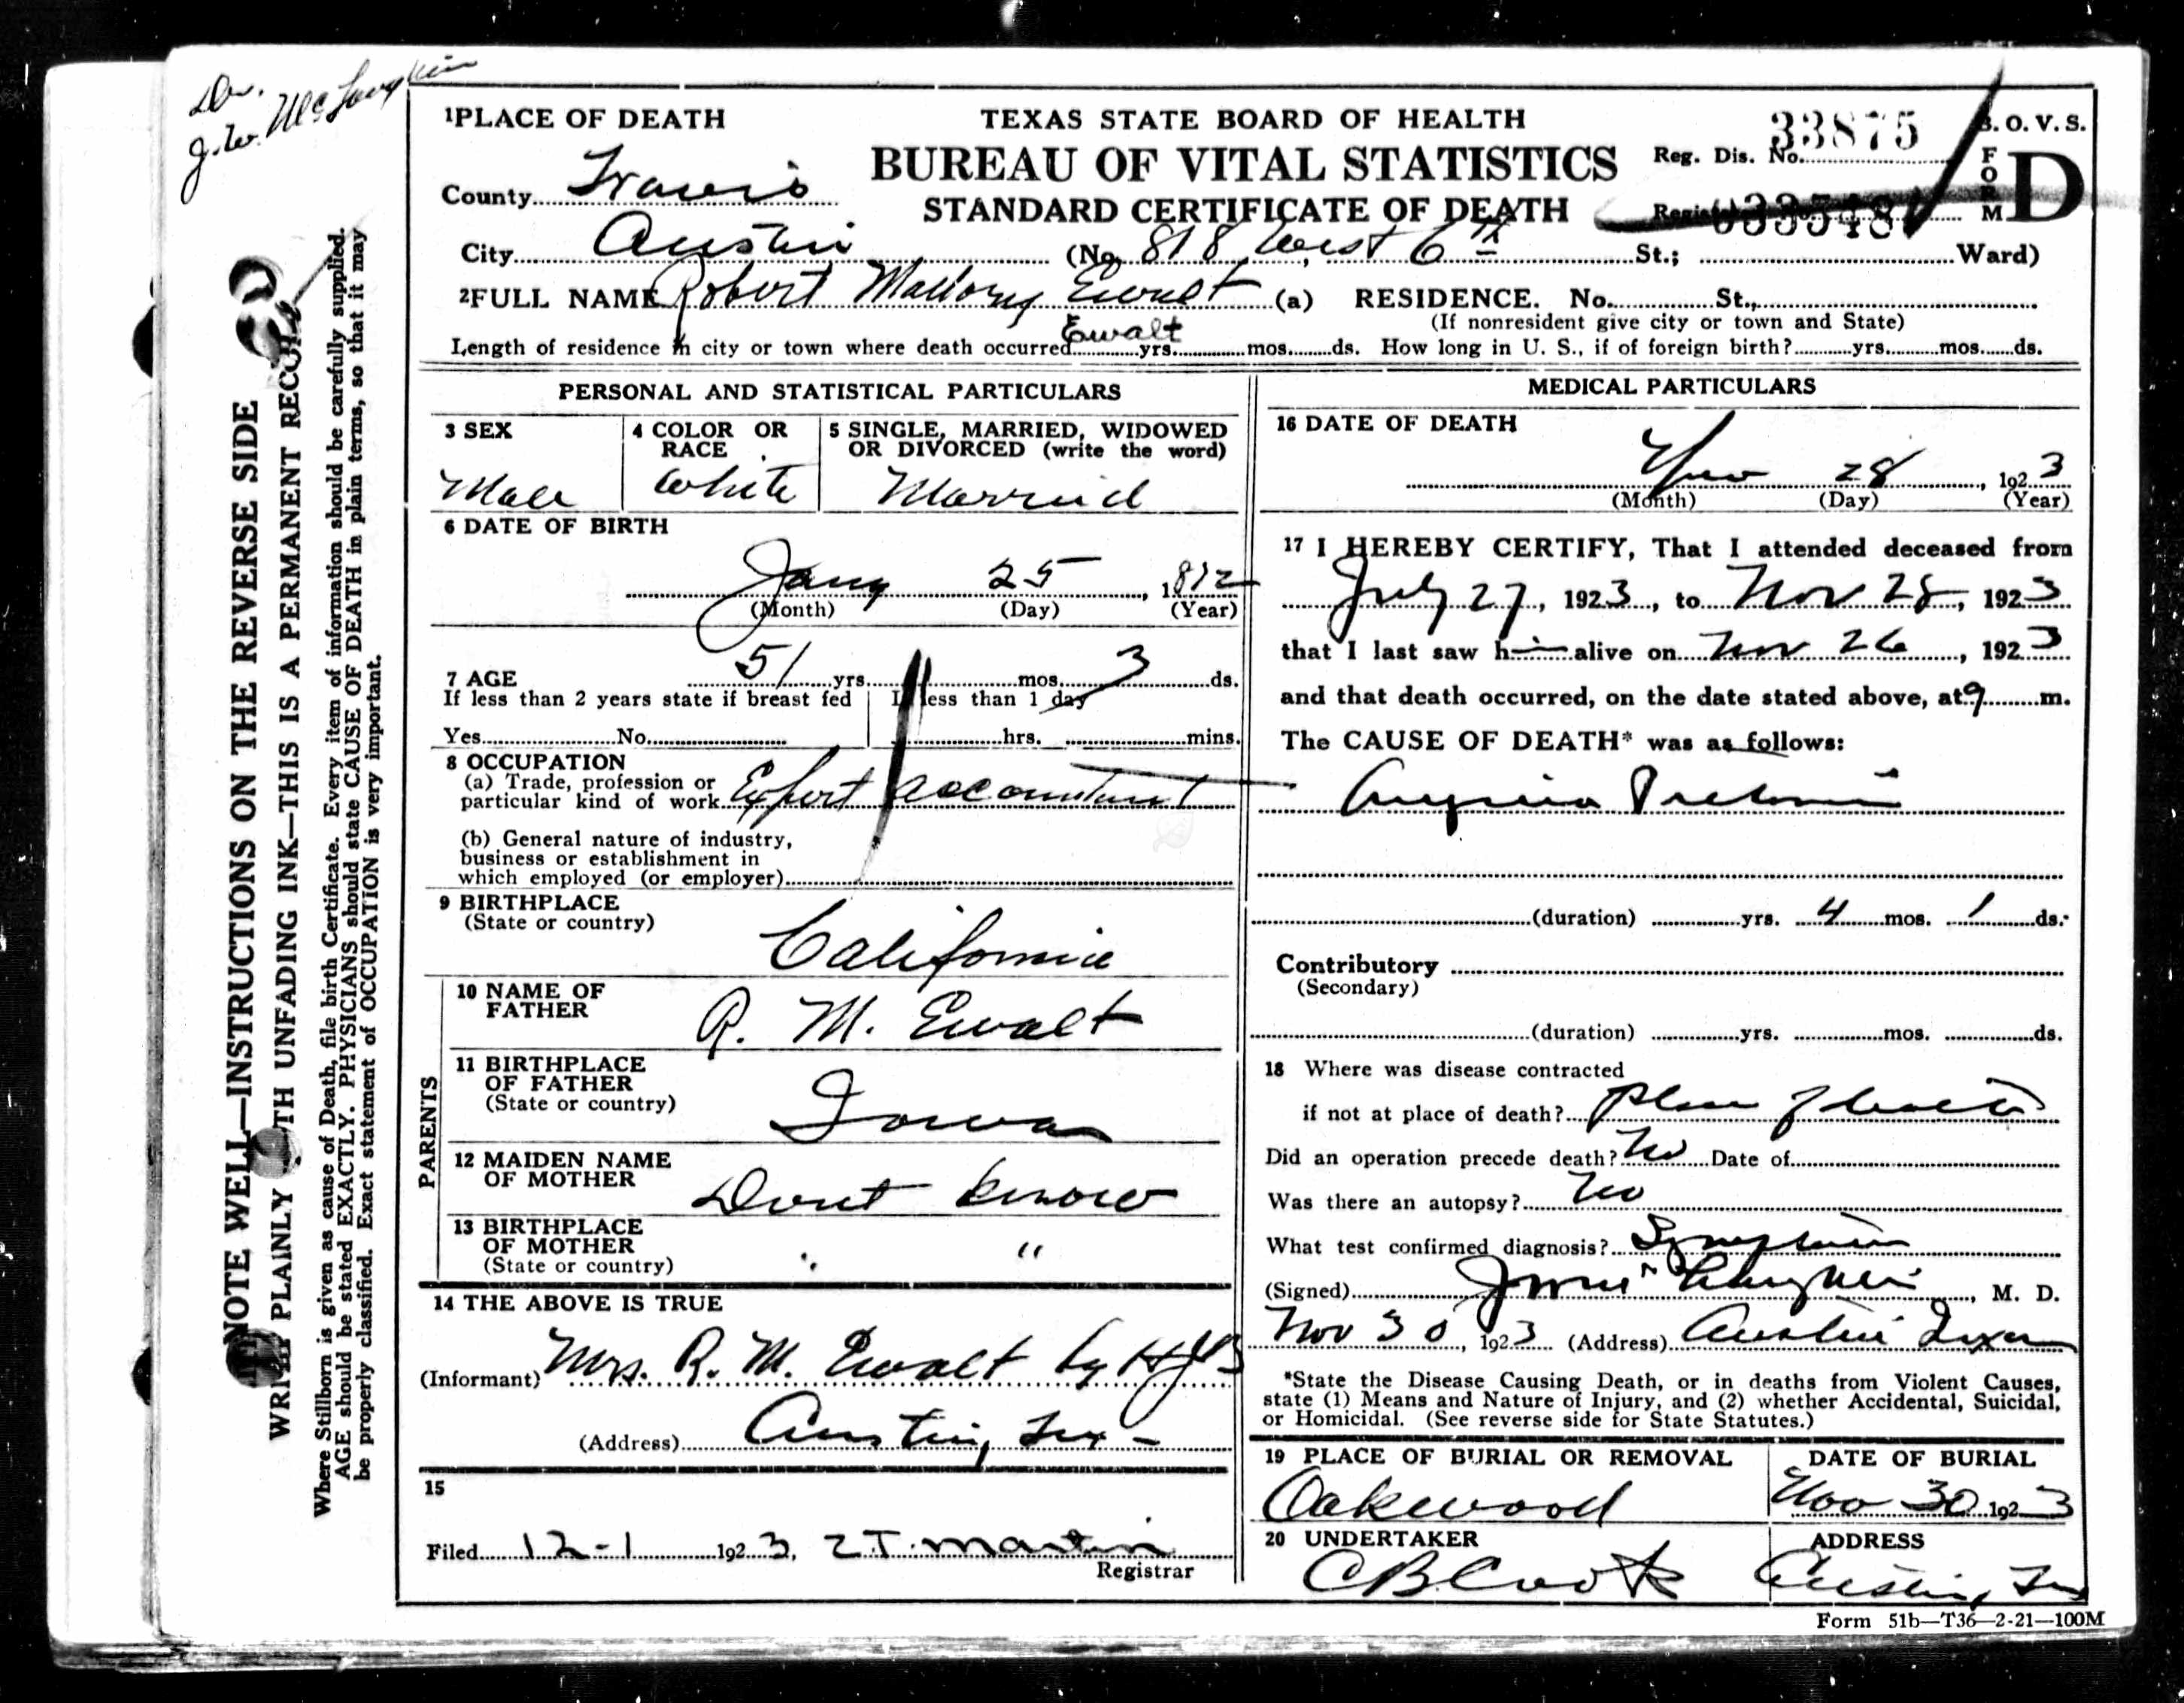 Dr.
J. W. McLaughlin
NOTE WELL—INSTRUCTIONS ON THE REVERSE SIDE
WRITE PLAINLY WITH UNFADING INK—THIS IS A PERMANENT RECORD
Where Stillborn is given as cause of Death, file birth Certificate. Every item of information should be carefully supplied.
AGE should be stated EXACTLY. PHYSICIANS should state CAUSE OF DEATH in plain terms, so that it may
be properly classified. Exact statement of OCCUPATION is very important.
1 PLACE OF DEATH
TEXAS STATE BOARD OF HEALTH
BUREAU OF VITAL STATISTICS
STANDARD CERTIFICATE OF DEATH
Reg. Dis. No. 33875
B. O. V. S.
FORM D
County Travis
City Austin (No. 818 West 6th St.; Ward)
2 FULL NAME Robert Mallory Ewalt (a) RESIDENCE. No. St.,
Ewalt
(If nonresident give city or town and State)
Length of residence in city or town where death occurred yrs. mos. ds. How long in U. S., if of foreign birth? yrs. mos. ds.
PERSONAL AND STATISTICAL PARTICULARS
3 SEX
Male
4 COLOR OR RACE
White
5 SINGLE, MARRIED, WIDOWED
OR DIVORCED (write the word)
Married
6 DATE OF BIRTH
Jany 25, 1872
(Month) (Day) (Year)
7 AGE 51 yrs. 11 mos. 3 ds.
If less than 2 years state if breast fed
If less than 1 day
Yes No hrs. mins.
8 OCCUPATION
(a) Trade, profession or
particular kind of work Expert accountant
(b) General nature of industry,
business or establishment in
which employed (or employer)
9 BIRTHPLACE
(State or country)
California
PARENTS
10 NAME OF
FATHER
R. M. Ewalt
11 BIRTHPLACE
OF FATHER
(State or country)
Iowa
12 MAIDEN NAME
OF MOTHER
Dont know
13 BIRTHPLACE
OF MOTHER
(State or country)
" "
14 THE ABOVE IS TRUE
(Informant) Mrs. R. M. Ewalt by
(Address) Austin, Tex-
15
Filed 12-1 1923, Z T. Martin
Registrar
MEDICAL PARTICULARS
16 DATE OF DEATH
Nov 28, 1923
(Month) (Day) (Year)
17 I HEREBY CERTIFY, That I attended deceased from
July 27, 1923, to Nov 28, 1923
that I last saw him alive on Nov 26, 1923
and that death occurred, on the date stated above, at 9 m.
The CAUSE OF DEATH* was as follows:
Angina Pectoris
(duration) yrs. 4 mos. 1 ds.
Contributory
(Secondary)
(duration) yrs. mos. ds.
18 Where was disease contracted
if not at place of death? Place of death
Did an operation precede death? No Date of
Was there an autopsy? No
What test confirmed diagnosis? Symptoms
(Signed) J W McLaughlin, M. D.
Nov 30, 1923 (Address) Austin Texas
*State the Disease Causing Death, or in deaths from Violent Causes,
state (1) Means and Nature of Injury, and (2) whether Accidental, Suicidal,
or Homicidal. (See reverse side for State Statutes.)
19 PLACE OF BURIAL OR REMOVAL
Oakwood
DATE OF BURIAL
Nov 30 1923
20 UNDERTAKER
C B Cook
ADDRESS
Austin, Tex
Form 51b—T36—2-21—100M